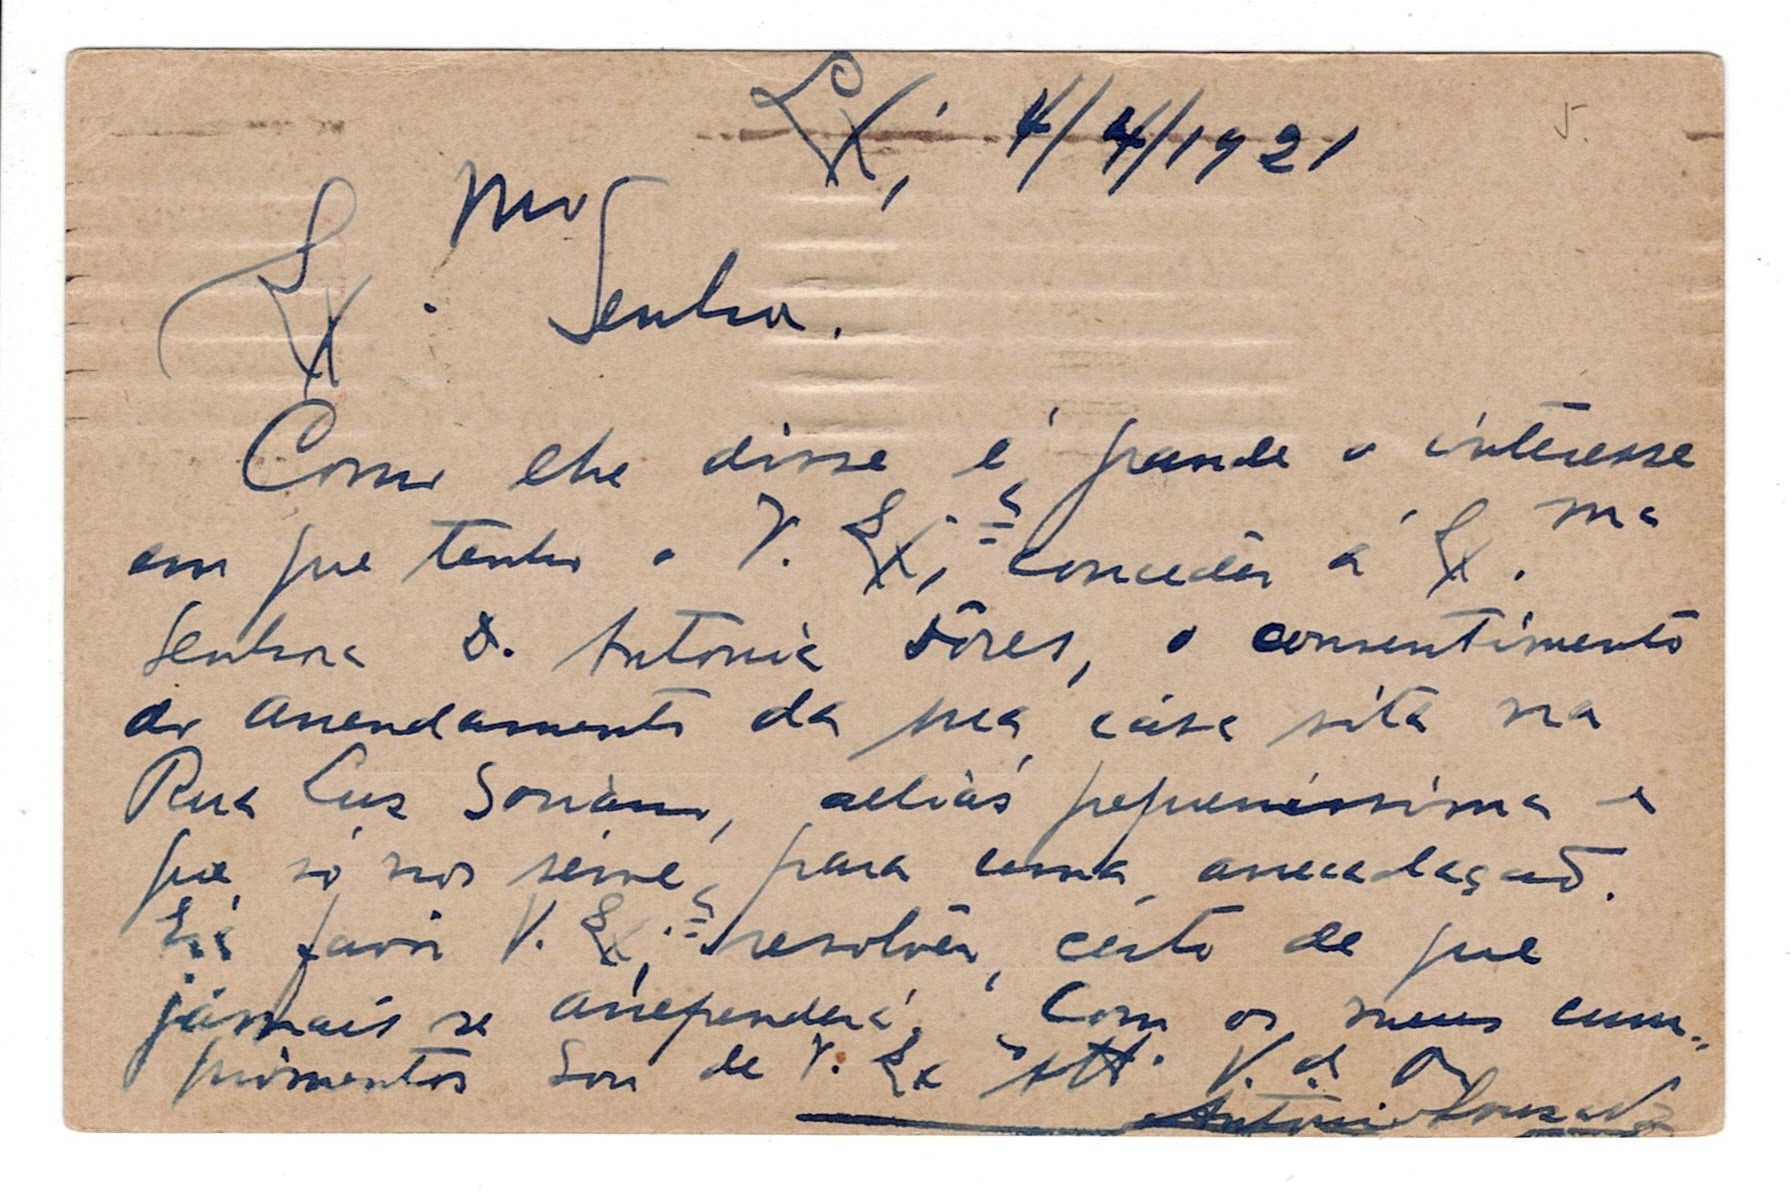 Lx, 4/4/1921
5.
Ex.mo Senhor.
Como lhe disse é grande o interesse
em que tenho o V. Ex.ª conceder á Ex.ma
Senhora D. Antonia Dôres, o consentimento
do arrendamento da sua casa sita na
Rua Luz Soriano, aliás pequenissima e
que só nos serve, para uma arrecadação.
favôr V. Ex.ª resolvêr, cérto de que
jámais se arrependerá. Com os meus cum-
primentos sou de V. Ex.ª Att.º V.dor
Antonio